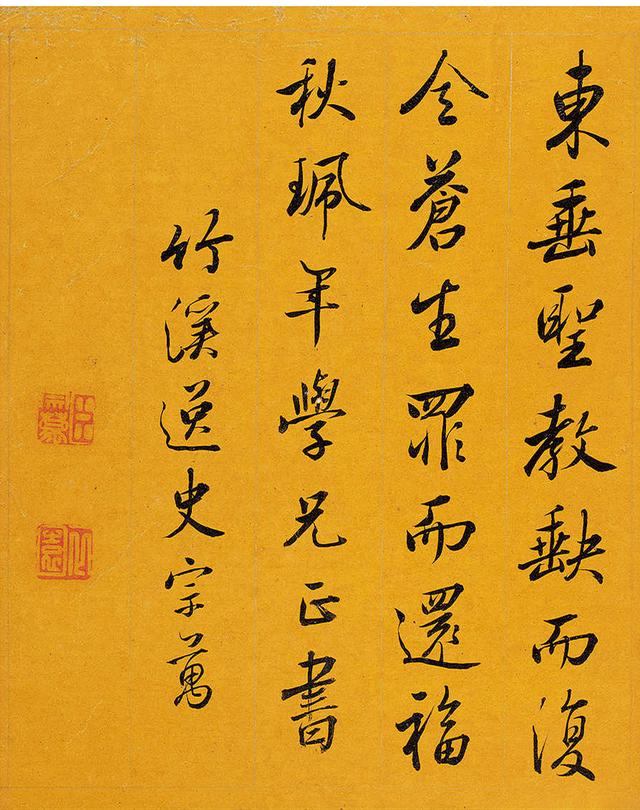 東垂聖教缺而復
全蒼生罪而還福
秋珮年學兄正書
竹溪逸史宗萬